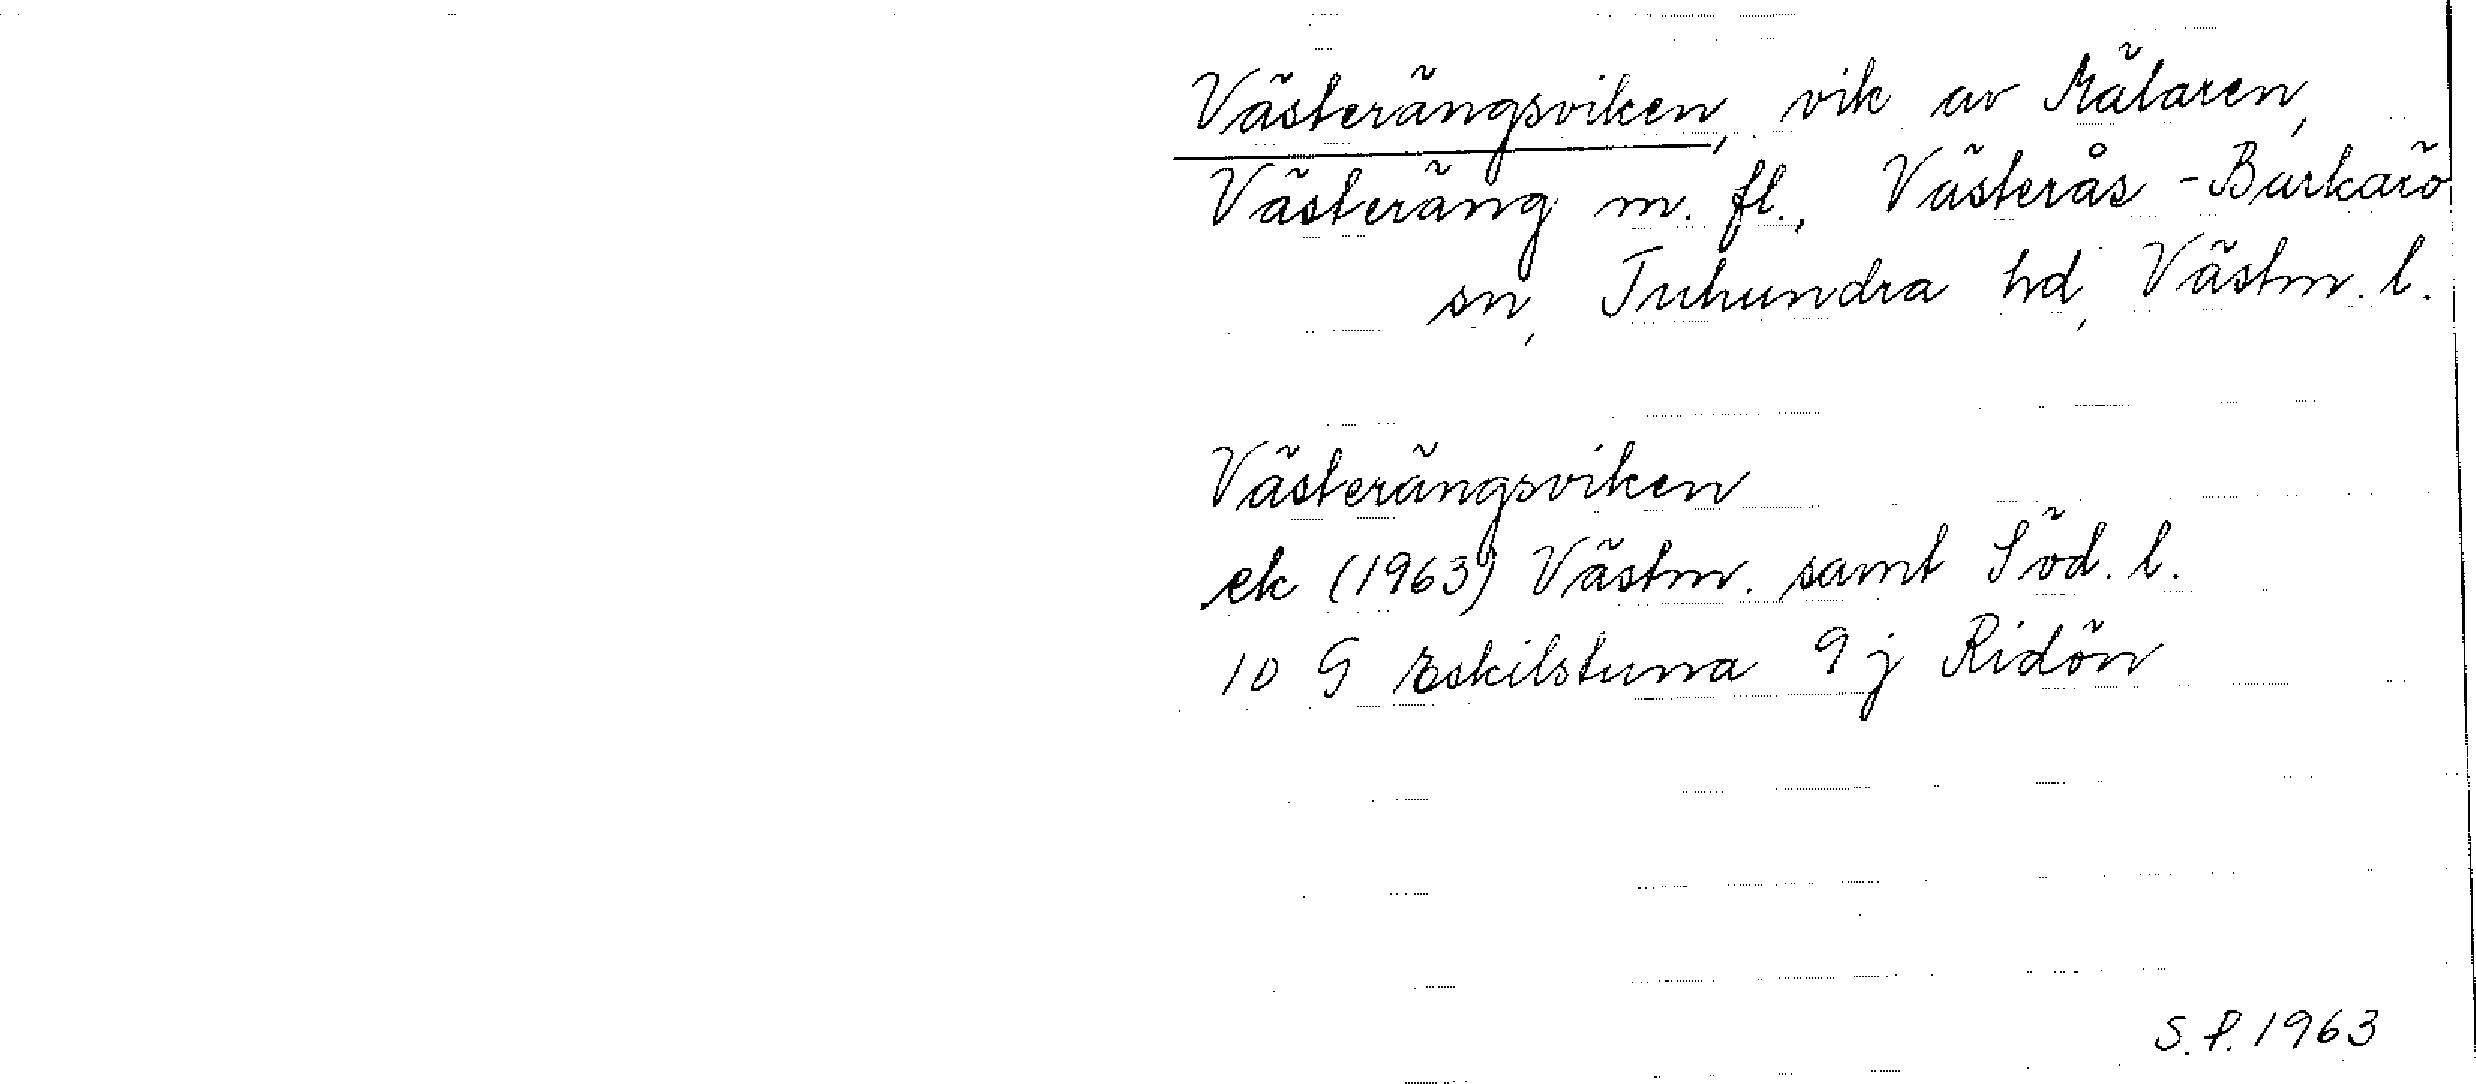 Västerängsviken, vik av Mälaren,
Västeräng m. fl., Västerås-Barkarö
sn, Tuhundra hd, Västm. l.
Västerängsviken
ek (1963) Västm. samt Söd. l.
10 G Eskilstuna 9 j Ridön
S.P. 1963